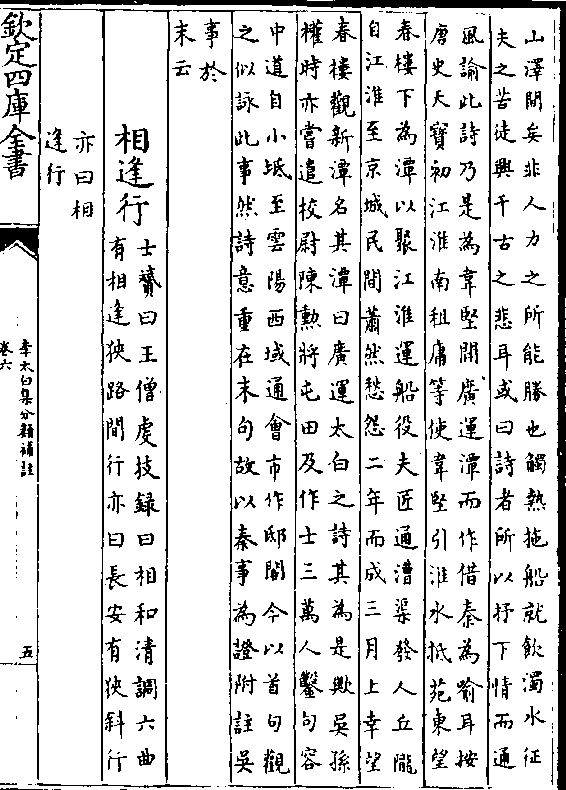 山澤間妄非人力之所能勝也觸熱拖船就飲濁水征
夫之苦徒興千古之悲耳或曰詩者所以抒下情而通
風諭此詩乃是為韋堅開廣運潭而作借秦為喻耳按
唐史天寶初江淮南租庸等使韋堅引淮水抵苑東望
春樓下為潭以聚江淮運船役夫匠通漕渠發人丘隴
自江淮至京城民間蕭然愁怨二年而成三月上幸望
春樓觀新潭名其潭曰廣運太白之詩其為是歟吳孫
權時亦嘗遣校尉陳勲將屯田及作士三萬人鑿句容
中道自小坻至雲陽西城通會市作邸閣今以首句觀
之似詠此事然詩意重在末句故以秦事為證附註吳
事於
末云
相逢行
士贇曰王僧虔技録曰相和清調六曲
有相逢狹路間行亦曰長安有狹斜行
亦曰相
逢行
欽定四庫全書
李太白集分類補註
卷六
五